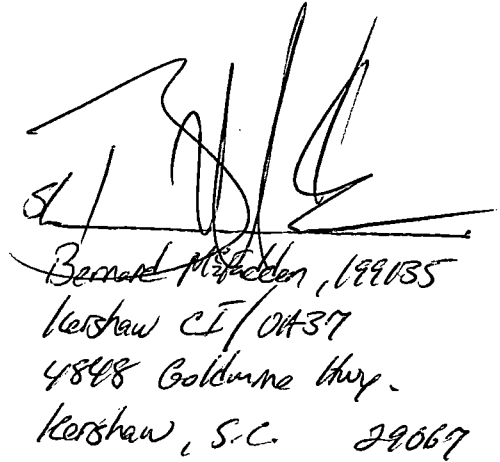 S/
Bernard McFadden, 199135
Kershaw CI/OA37
4848 Goldmine Hwy.
Kershaw, S.C. 29067